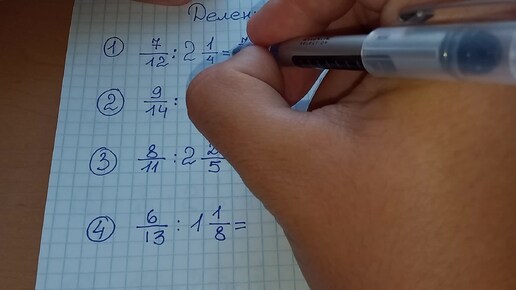 ① 7/12 : 2 1/4 = 7
② 9/14 :
③ 8/11 : 2 2/5
④ 6/13 : 1 1/8 =